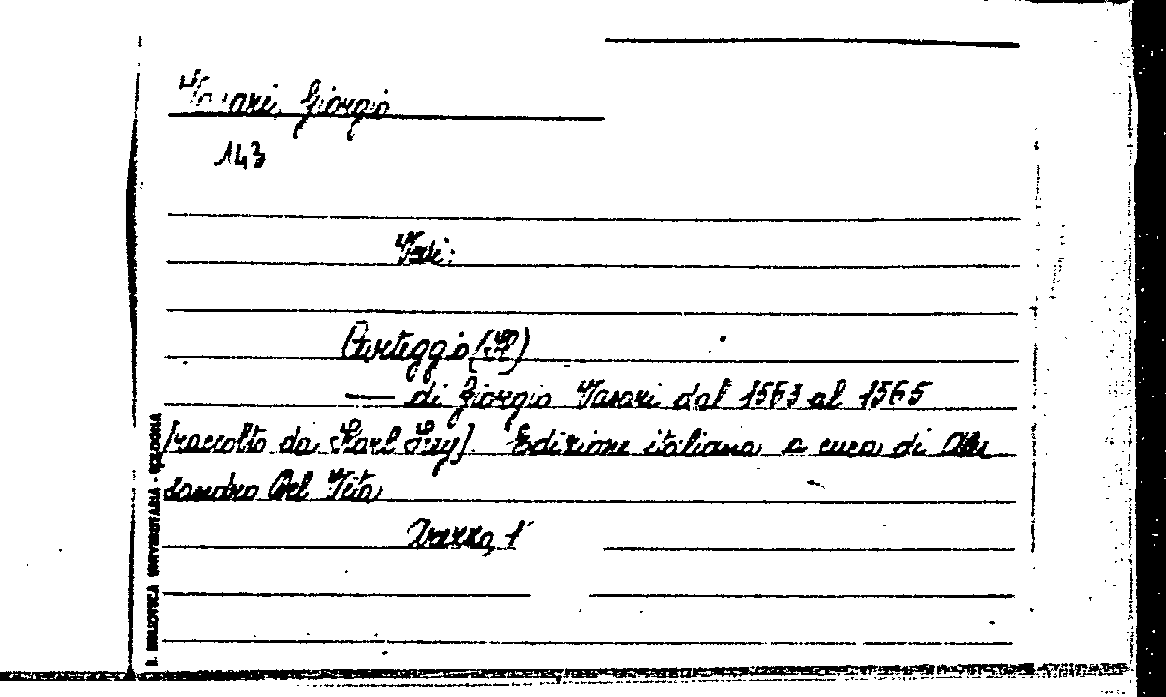 Vasari, Giorgio
143
Vedi:
Carteggio (Il)
— di Giorgio Vasari dal 1563 al 1565
[raccolto da Karl Frey]. Edizione italiana a cura di Ales
sandro Del Vita
Arezzo, 1
B. BIBLIOTECA UNIVERSITARIA - BOLOGNA